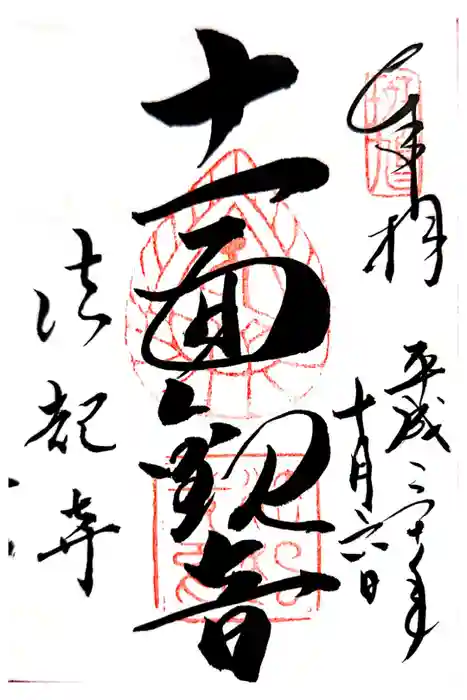 奉拝
平成三十年
十月六日
十一面観音
法起寺